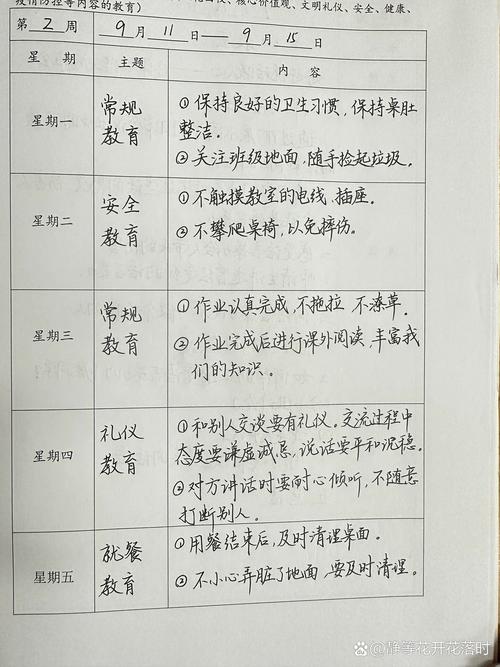 疫情防控等内容的教育）
核心价值观、文明礼仪、安全、健康、
第 2 周 9 月 11 日 — 9 月 15 日
星期 主题 内容
星期一 常规教育 ①保持良好的卫生习惯，保持桌肚
整洁。
②关注班级地面，随手捡起垃圾。
星期二 安全教育 ①不触摸教室的电线、插座。
②不攀爬桌椅，以免摔伤。
星期三 常规教育 ①作业认真完成，不拖拉 不潦草．
②作业完成后进行课外阅读，丰富我
们的知识。
星期四 礼仪教育 ①和别人交谈要有礼仪。交流过程中
态度要谦虚诚恳，说话要平和沉稳。
②对方讲话时要耐心倾听，不随意
打断别人。
星期五 就餐教育 ①用餐结束后，及时清理桌面．
②不小心弄脏了地面，要及时清理。
@静等花开花落时